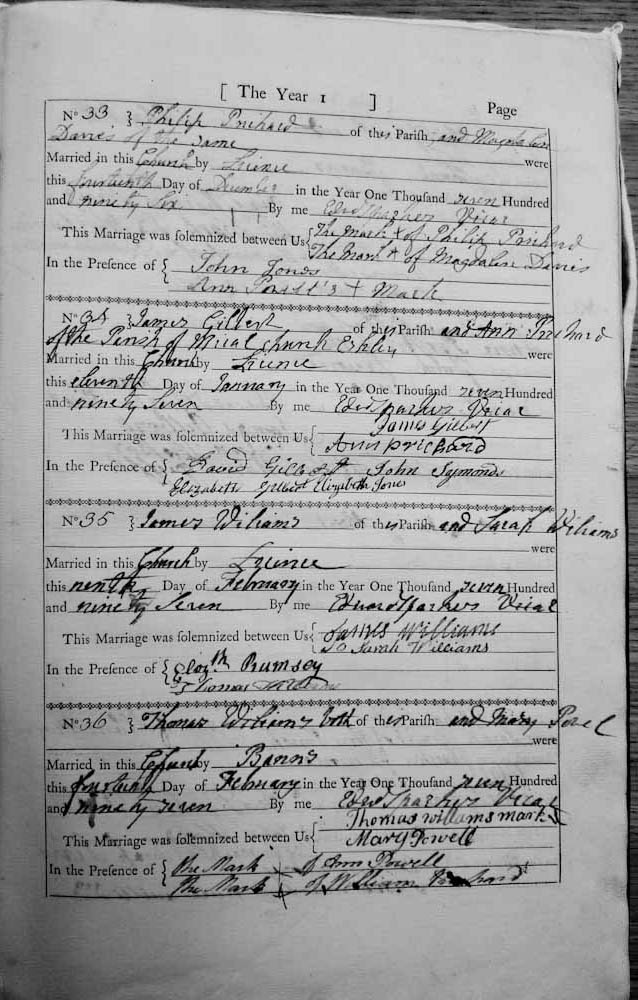 [ The Year 1 ] Page
No 33 } Philip Prichard of this Parish and Magdalen
Davies of the same
were
Married in this Church by Licence
this fourteenth Day of December in the Year One Thousand seven Hundred
and ninety Six By me Edwd Vicar
This Marriage was solemnized between Us { The Mark + of Philip Prichard
The Mark + of Magdalen Davies
In the Presence of { John Jones
Ann + Mark
No 34 } James Gilbert of this Parish and Ann Prichard
of the Parish of
were
Married in this Church by Licence
this eleventh Day of January in the Year One Thousand seven Hundred
and ninety Seven By me Edwd Vicar
This Marriage was solemnized between Us { James Gilbert
Ann prichard
In the Presence of { David Gilbert John Symonds
Elizabeth Gilbert Elizabeth Jones
No 35 } James Wiliams of this Parish and Sarah Wiliams
were
Married in this Church by Licence
this Day of February in the Year One Thousand seven Hundred
and ninety Seven By me Vicar
This Marriage was solemnized between Us { James Williams
Sarah Williams
In the Presence of { Rumsey
Thomas
No 36 } Thomas Wiliams both of this Parish and Mary
were
Married in this Church by Banns
this Day of February in the Year One Thousand seven Hundred
and ninety seven By me Edwd Vicar
Thomas williams mark
This Marriage was solemnized between Us { Mary Powell
In the Presence of { the Mark of Ann Powell
the Mark + of William